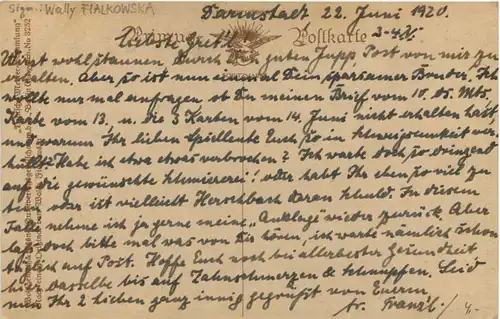 Sign. Wally FIALKOWSKA
Darmstadt 22. Juni 1920.
Primus-Postkarte
3-4 h.
Liebste Gretl!
Wirst wohl staunen durch den guten Jupp Post von mir zu
erhalten. Aber so ist nun einmal Dein sparsamer Bruder. Ich
wollte nur mal anfragen ob Du meinen Brief vom 10. ds. Mts.
Karte vom 13. u. die 3 Karten vom 14. Juni nicht erhalten hast
und warum Ihr lieben Euch so in Schweigsamkeit
hüllt? Habe ich etwa etwas verbrochen? Ich warte doch so dringend
auf die gewünschte Schmiererei! oder habt Ihr eben so viel zu
tun oder ist vielleicht Herschbach daran Schuld. In diesem
Falle nehme ich ja gerne meine "Anklage" wieder zurück. Aber
lass doch bitte mal was von Dir hören, ich warte nämlich schon
täglich auf Post. Hoffe Euch noch bei allerbester Gesundheit
bin dasselbe bis auf Zahnschmerzen & Schnupfen. Seid
nun Ihr 2 lieben ganz innig gegrüßt von Eurem
Br. Franzl.